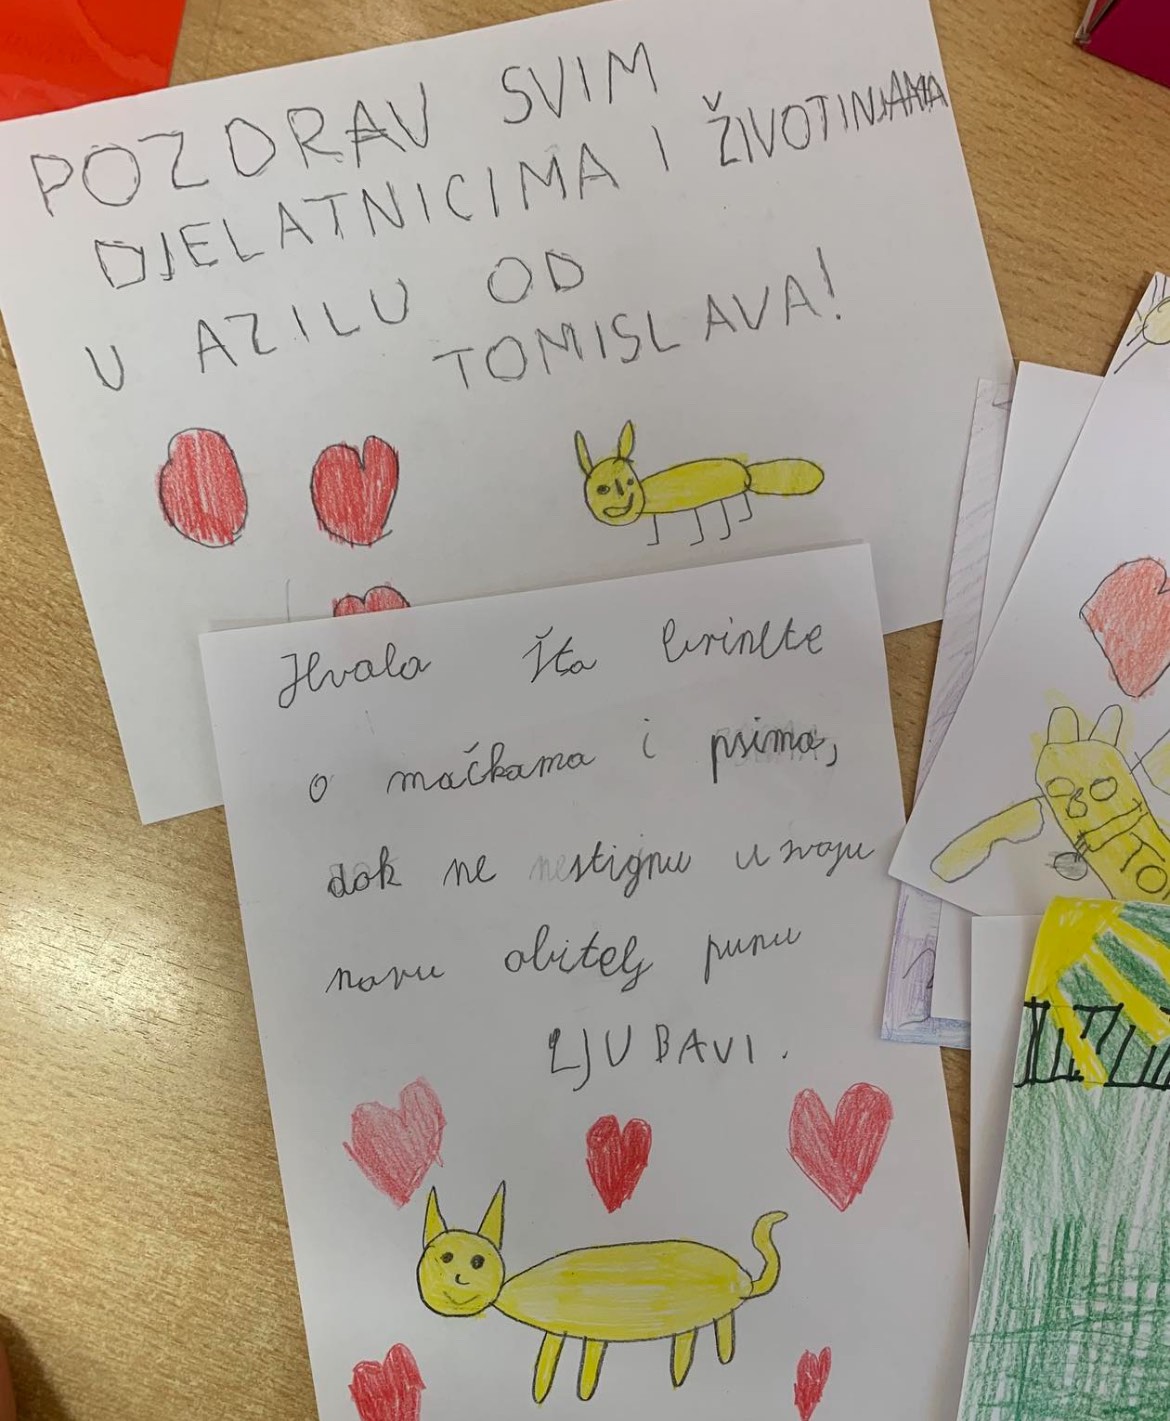 POZDRAV SVIM
DJELATNICIMA I ŽIVOTINJAMA
U AZILU OD
TOMISLAVA!
Hvala šta brinete
o mačkama i psima,
dok ne stignu u svoju
novu obitelj punu
LJUBAVI.
TO